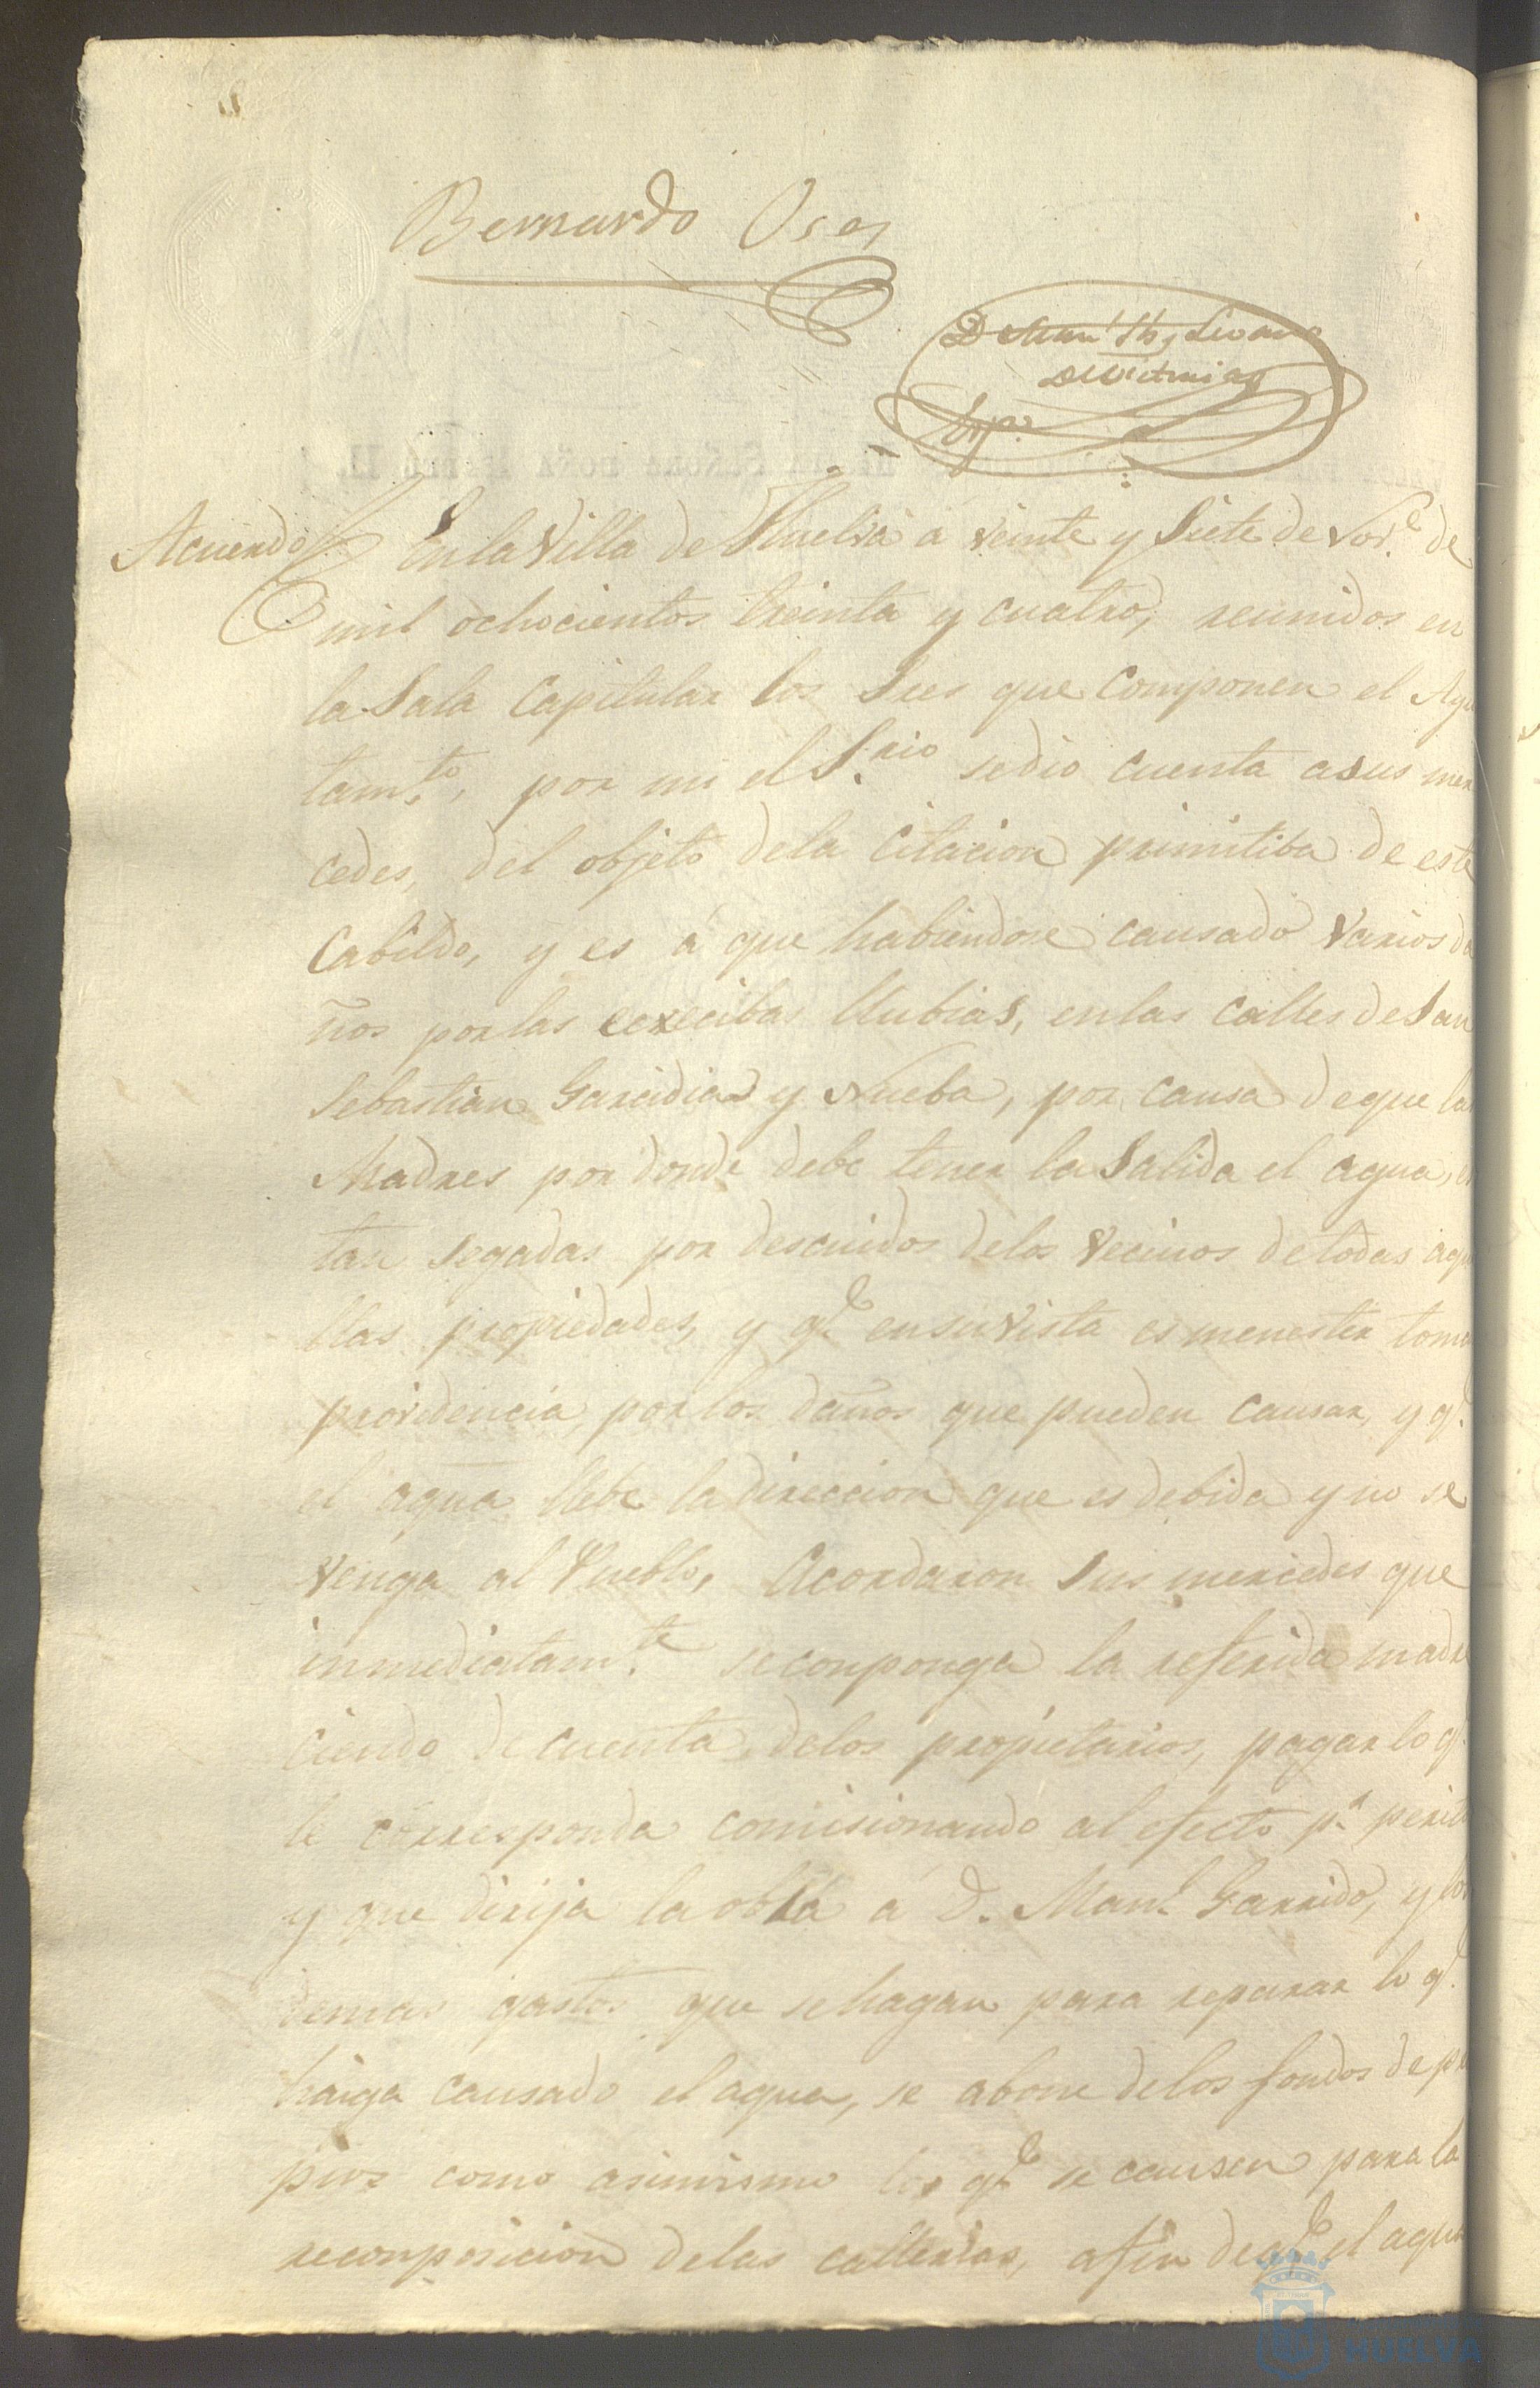 Bernardo Oses
Acuerdo En la Villa de Huelva á veinte y Siete de Nov.e de
mil ochocientos treinta y cuatro, reunidos en
la Sala Capitular los Sres que componen el Ayu
tam.to, por mi el S.rio se dio cuenta a sus mer
cedes, del objeto de la citacion primitiba de este
Cabildo, y es á que habiendose causado varios da
ños por las excecibas llubias, en las calles de San
Sebastian Garcidias y Nueba, por causa de que las
Madres por donde debe tener la Salida el agua, es
tan segadas por descuidos de los vecinos de todas aque
llas propiedades, y q.e en su vista es menester tomar
providencia, por los daños que pueden causar, y q.
el agua llebe la direccion que es debida y no se
venga al Pueblo, Acordaron Sus mercedes que
inmediatam.te se conponga la referida madre
ciendo de cuenta de los propietarios, pagar lo q.
le corresponda comisionando al efecto p.a perito
y que dirija la obra á D. Man.l Garrido, y los
demas gastos que se hagan para reparar lo q.
haiga causado el agua, se abone de los fondos de pro
pios como asimismo los q.e se causen para la
reconposicion de las callerias, a fin de q.e el agua
HUELVA